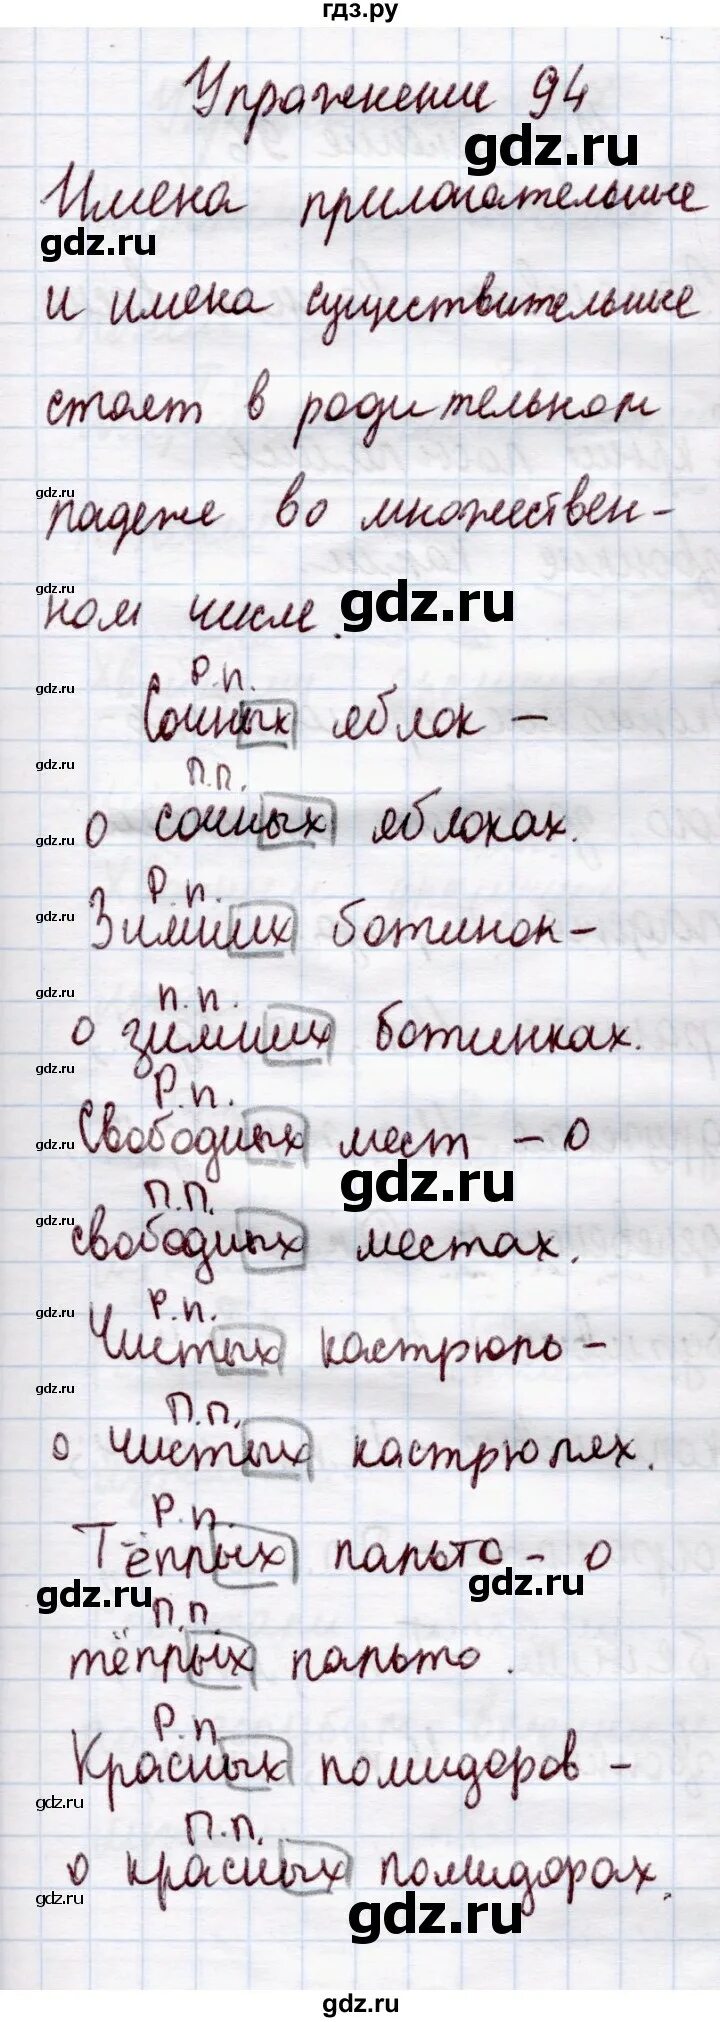 гдз.ру
Упражнение 94
gdz.ru
Имена прилагательные
gdz.ru
и имена существительные
стоят в родительном
gdz.ru
падеже во множествен-
gdz.ru
ном числе.
gdz.ru
Р.п.
gdz.ru
Сочных яблок -
gdz.ru
П.п.
о сочных яблоках.
gdz.ru
Р.п.
gdz.ru
Зимних ботинок-
gdz.ru
п.п.
о зимних ботинках.
gdz.ru
Р.п.
Свободных мест - о
gdz.ru
gdz.ru
П.П.
gdz.ru
свободных местах.
Р.п.
gdz.ru
Чистых кастрюль -
gdz.ru
П.п.
о чистых кастрюлях.
gdz.ru
Р.п.
Тёплых пальто - о
gdz.ru
gdz.ru
П.п.
тёплых пальто.
Р.п.
Красных помидоров -
gdz.ru
П.п.
о красных помидорах.
gdz.ru
gdz.ru
gdz.ru